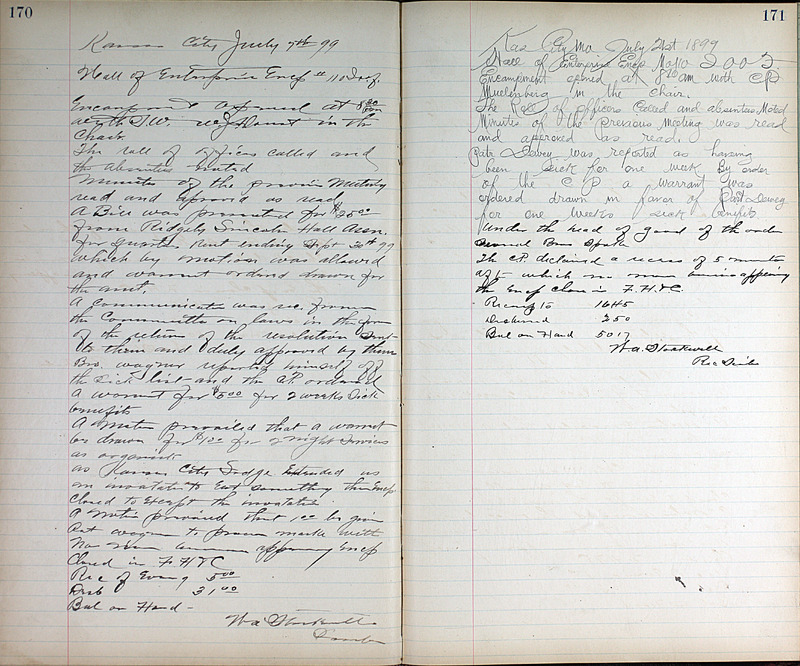 170
Kansas City July 7th 99
Hall of Enterprise Encp # 11 I.O.O.F.
Encampment opened at 8 30
with J.W. in the
Chair
The roll of officers called and
the absenties noted
Minutes of the previous Meeting
read and approved as read
A Bill was presented for $25 00
from Ridgely Lincoln Hall Assn.
for quarter Rent ending Sept 30th 99
which by motion was allowed
and warrant ordered drawn for
the amt.
A Communication was rec. from
the Committee on laws in the form
of the return of the resolution sent
to them and duly approved by them
Bro. Wagner reported himself off
the sick list and the C.P. ordered
a warrant for $5.00 for 2 weeks Sick
benefits
A Motion prevailed that a warrant
be drawn for $1.00 for 2 night services
as organist
as Kansas City Lodge Extended us
an invatation to Eat something this Encp
Closed to Except the invatation
A Motion prevailed that 1 00 be given
Pat
No
appearing Encp
Closed in F. H & C
Rec of Evang 5 00
Disb 31,00
Bal on Hand -
Wa. Stockwell
Scribe
171
Kas City Mo July 21st 1899
Hall of Enterprise Encp No 11 I O O F
Encampment opened at 8 30 am with CP
Muelenberg in the chair.
The Roll of officers Called and absentas Noted
Minutes of the previous Meeting was read
and approved as read.
Patr Dewey was reported as having
been sick for one week by order
of the C P a warrant was
ordered drawn in favor of Part Dewey
for one weeks seak benefits
Under the head of good of the order
several Bros Spoke
The C.P. declared a recess of 5 minutes
after which no more buisness appearing
the Encp Close in F.H.&C.
Receipts 1645
Disbursed 250
Bal on Hand 5017
Wa. Stockwell
Rec Scribe